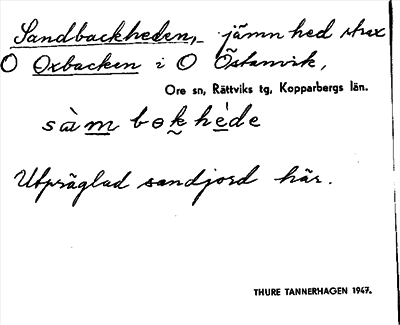 Sandbackheden, jämn hed strax
O Oxbacken i O Östanvik,
Ore sn, Rättviks tg, Kopparbergs län.
sàm bɵk héde
Utpräglad sandjord här.
THURE TANNERHAGEN 1947.